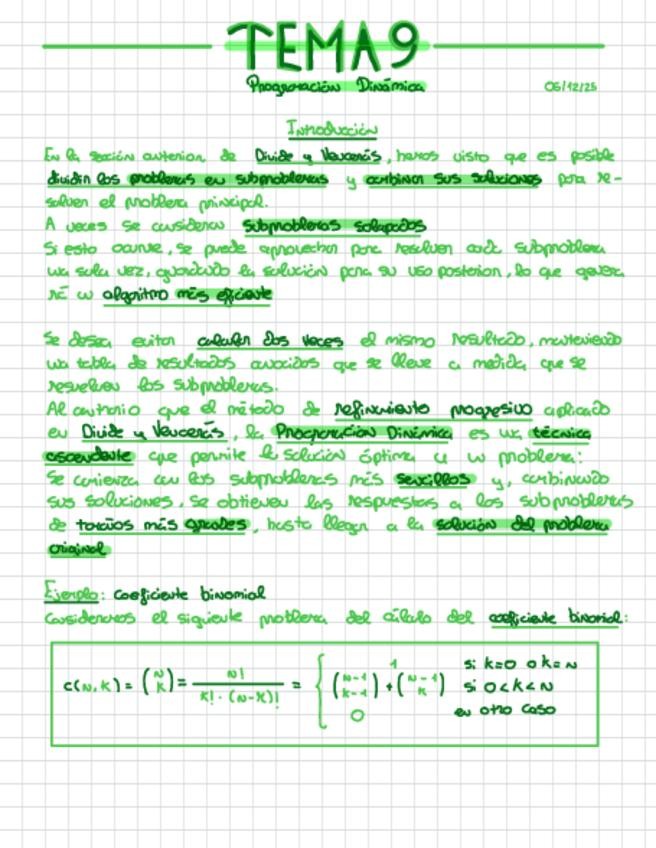 TEMA 9
Programación Dinámica 06/12/25
Introducción
En la sección anterior de Divide y Vencerás, hemos visto que es posible
dividir los problemas en subproblemas y combinar sus soluciones para re-
solver el problema principal.
A veces se consideran subproblemas solapados
Si esto ocurre, se puede aprovechar para resolver cada subproblema
una sola vez, guardando la solución para su uso posterior, lo que genera
rá un algoritmo más eficiente
Se desea evitar calcular dos veces el mismo resultado, manteniendo
una tabla de resultados conocidos que se lleve a medida que se
resuelven los subproblemas.
Al contrario que el método de refinamiento progresivo aplicado
en Divide y Vencerás, la Programación Dinámica es una técnica
ascendente que permite la solución óptima a un problema:
Se comienza con los subproblemas más sencillos y, combinando
sus soluciones, se obtienen las respuestas a los subproblemas
de tamaños más grandes, hasta llegar a la solución del problema
original
Ejemplo: coeficiente binomial
Consideremos el siguiente problema del cálculo del coeficiente binomial:
1 si k=0 o k=n
c(n,k) = (n k) = n! / k! · (n-k)! = { (n-1 k-1) + (n-1 k) si 0<k<n
0 en otro caso